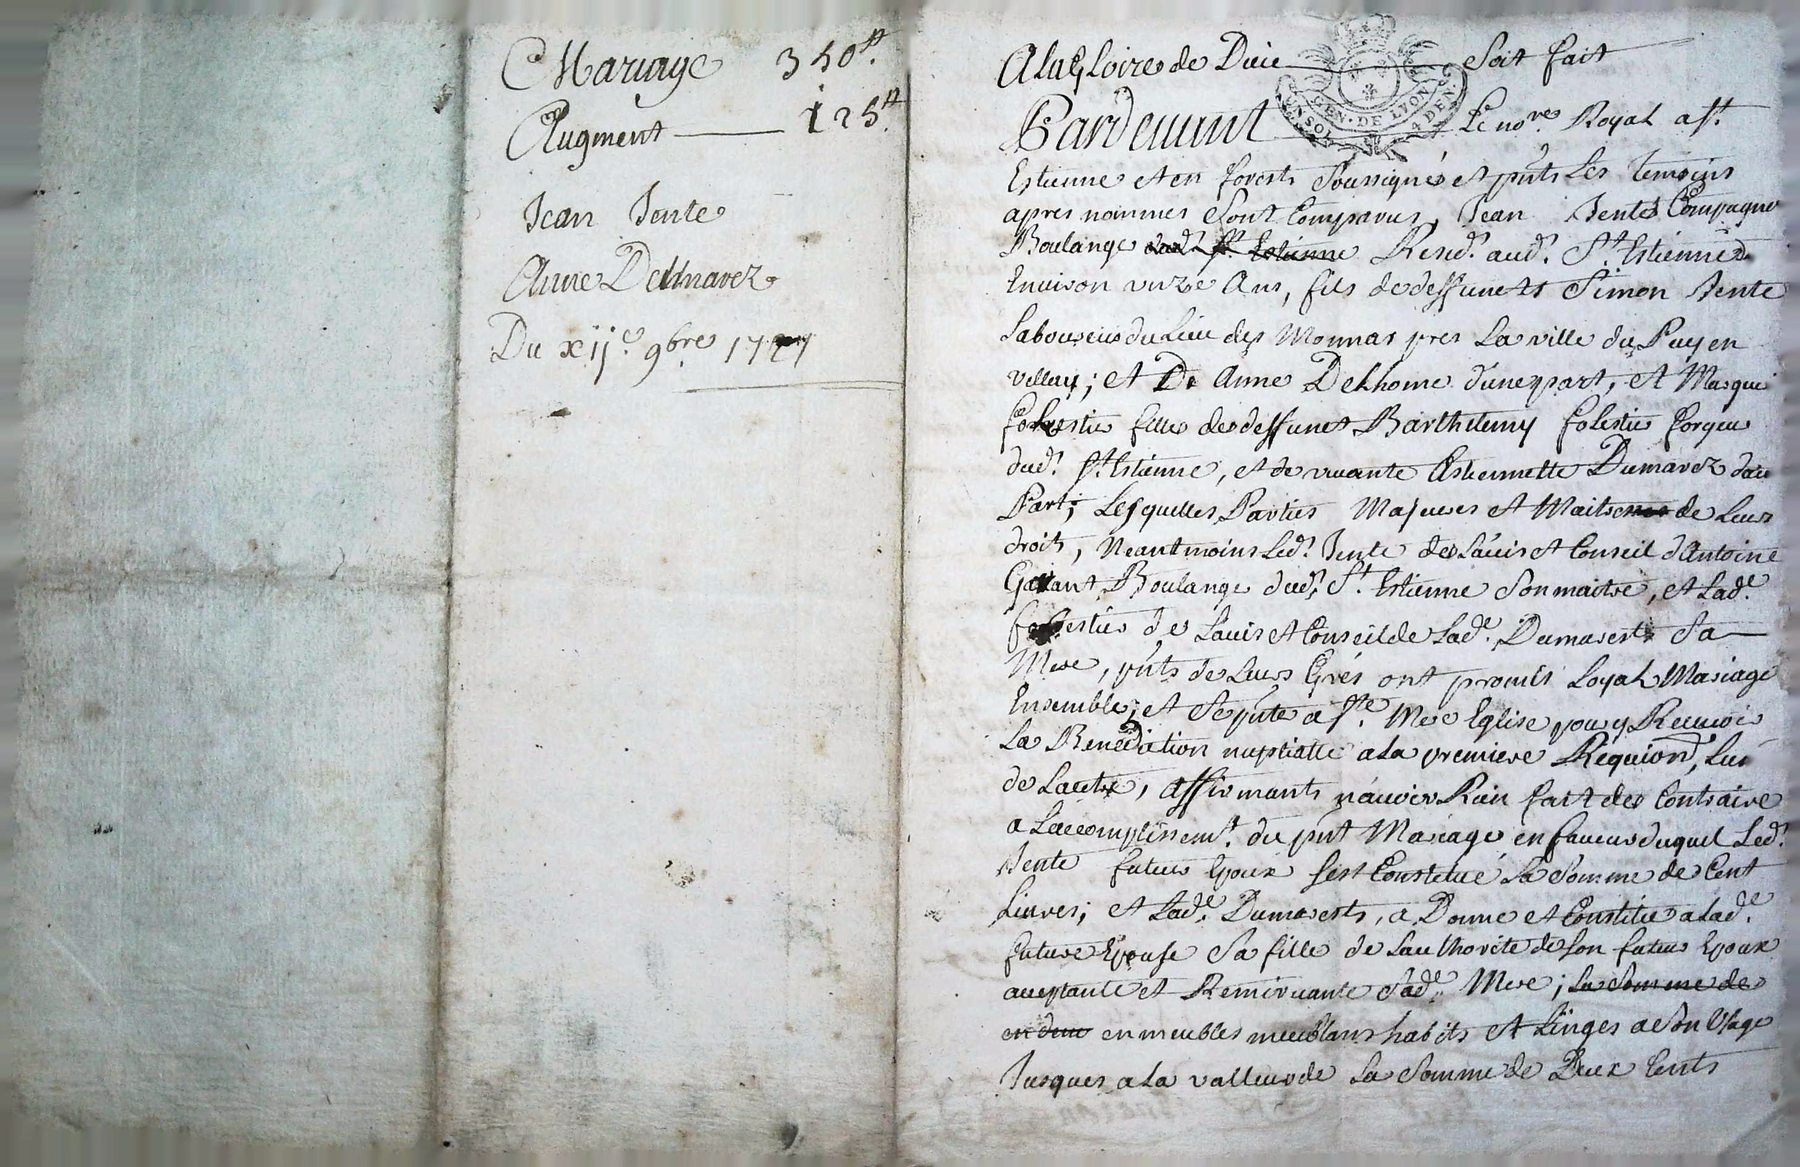 Mariage 350ᵗᵗ.
Augment — 125ᵗᵗ.
Jean Tente
Anne Delmarez
Du xijᵉ. 9bre 17
A la Gloire de Dieu Soit fait
GEN. DE LYON
UN SOL 4 DEN.
Pardevant Le noʳᵉ Royal a Sᵗ.
Estienne et en forests Soussigné et pnts Les temoins
apres nommes Sont Comparus, Jean Tente Compagnon
Boulangé dudᵗ. Sᵗ. Estienne Residᵗ. audᵗ. Sᵗ. Estienne d.
Enuiron unze Ans, fils de deffuncts Simon Tente
Laboureur du Lieu des Monnas pres La ville du Puy en
vellay; et De Anne Delhome d'une part, et
folestie fille de deffunct Barthelemy folestie forgeu
dudᵗ. Sᵗ. Estienne, et de viuante Estiennette Dumarez d'au
Part; Lesquelles Parties Majeures et Maitres de Leurs
droits, Neantmoins Ledᵗ. Tente de L'auis et Conseil d'Antoine
Boulangé dudᵗ. Sᵗ. Estienne Son maitre, et Ladᵉ.
folestie de L'auis et Conseil de Ladᵉ. Dumarests Sa
Mere, pnts de Leurs Grés ont promis Loyal Mariage
Ensemble, et Se pnte a Sᵗᵉ. Mere Eglise pour y Receuoir
La Benediction nuptialle a La premiere Requiōn, L'un
de L'autre, affirmants n'auoir Rien fait de Contraire
a L'accomplissemᵗ. du pnt Mariage en faueur duquel Ledᵗ.
Tente futur Epoux s'est Constitué La Somme de Cent
Liures; et Ladᵉ. Dumarests, a Donné et Constitué a Ladᵉ.
future Epouse Sa fille de L'authorité de Son futur Epoux
acceptante et Remerciante Sadᵉ. Mere; La Somme de
en deux en meubles meublans habits et Linges a Son Usage
Jusques a La valleur de La Somme de Deux Cents